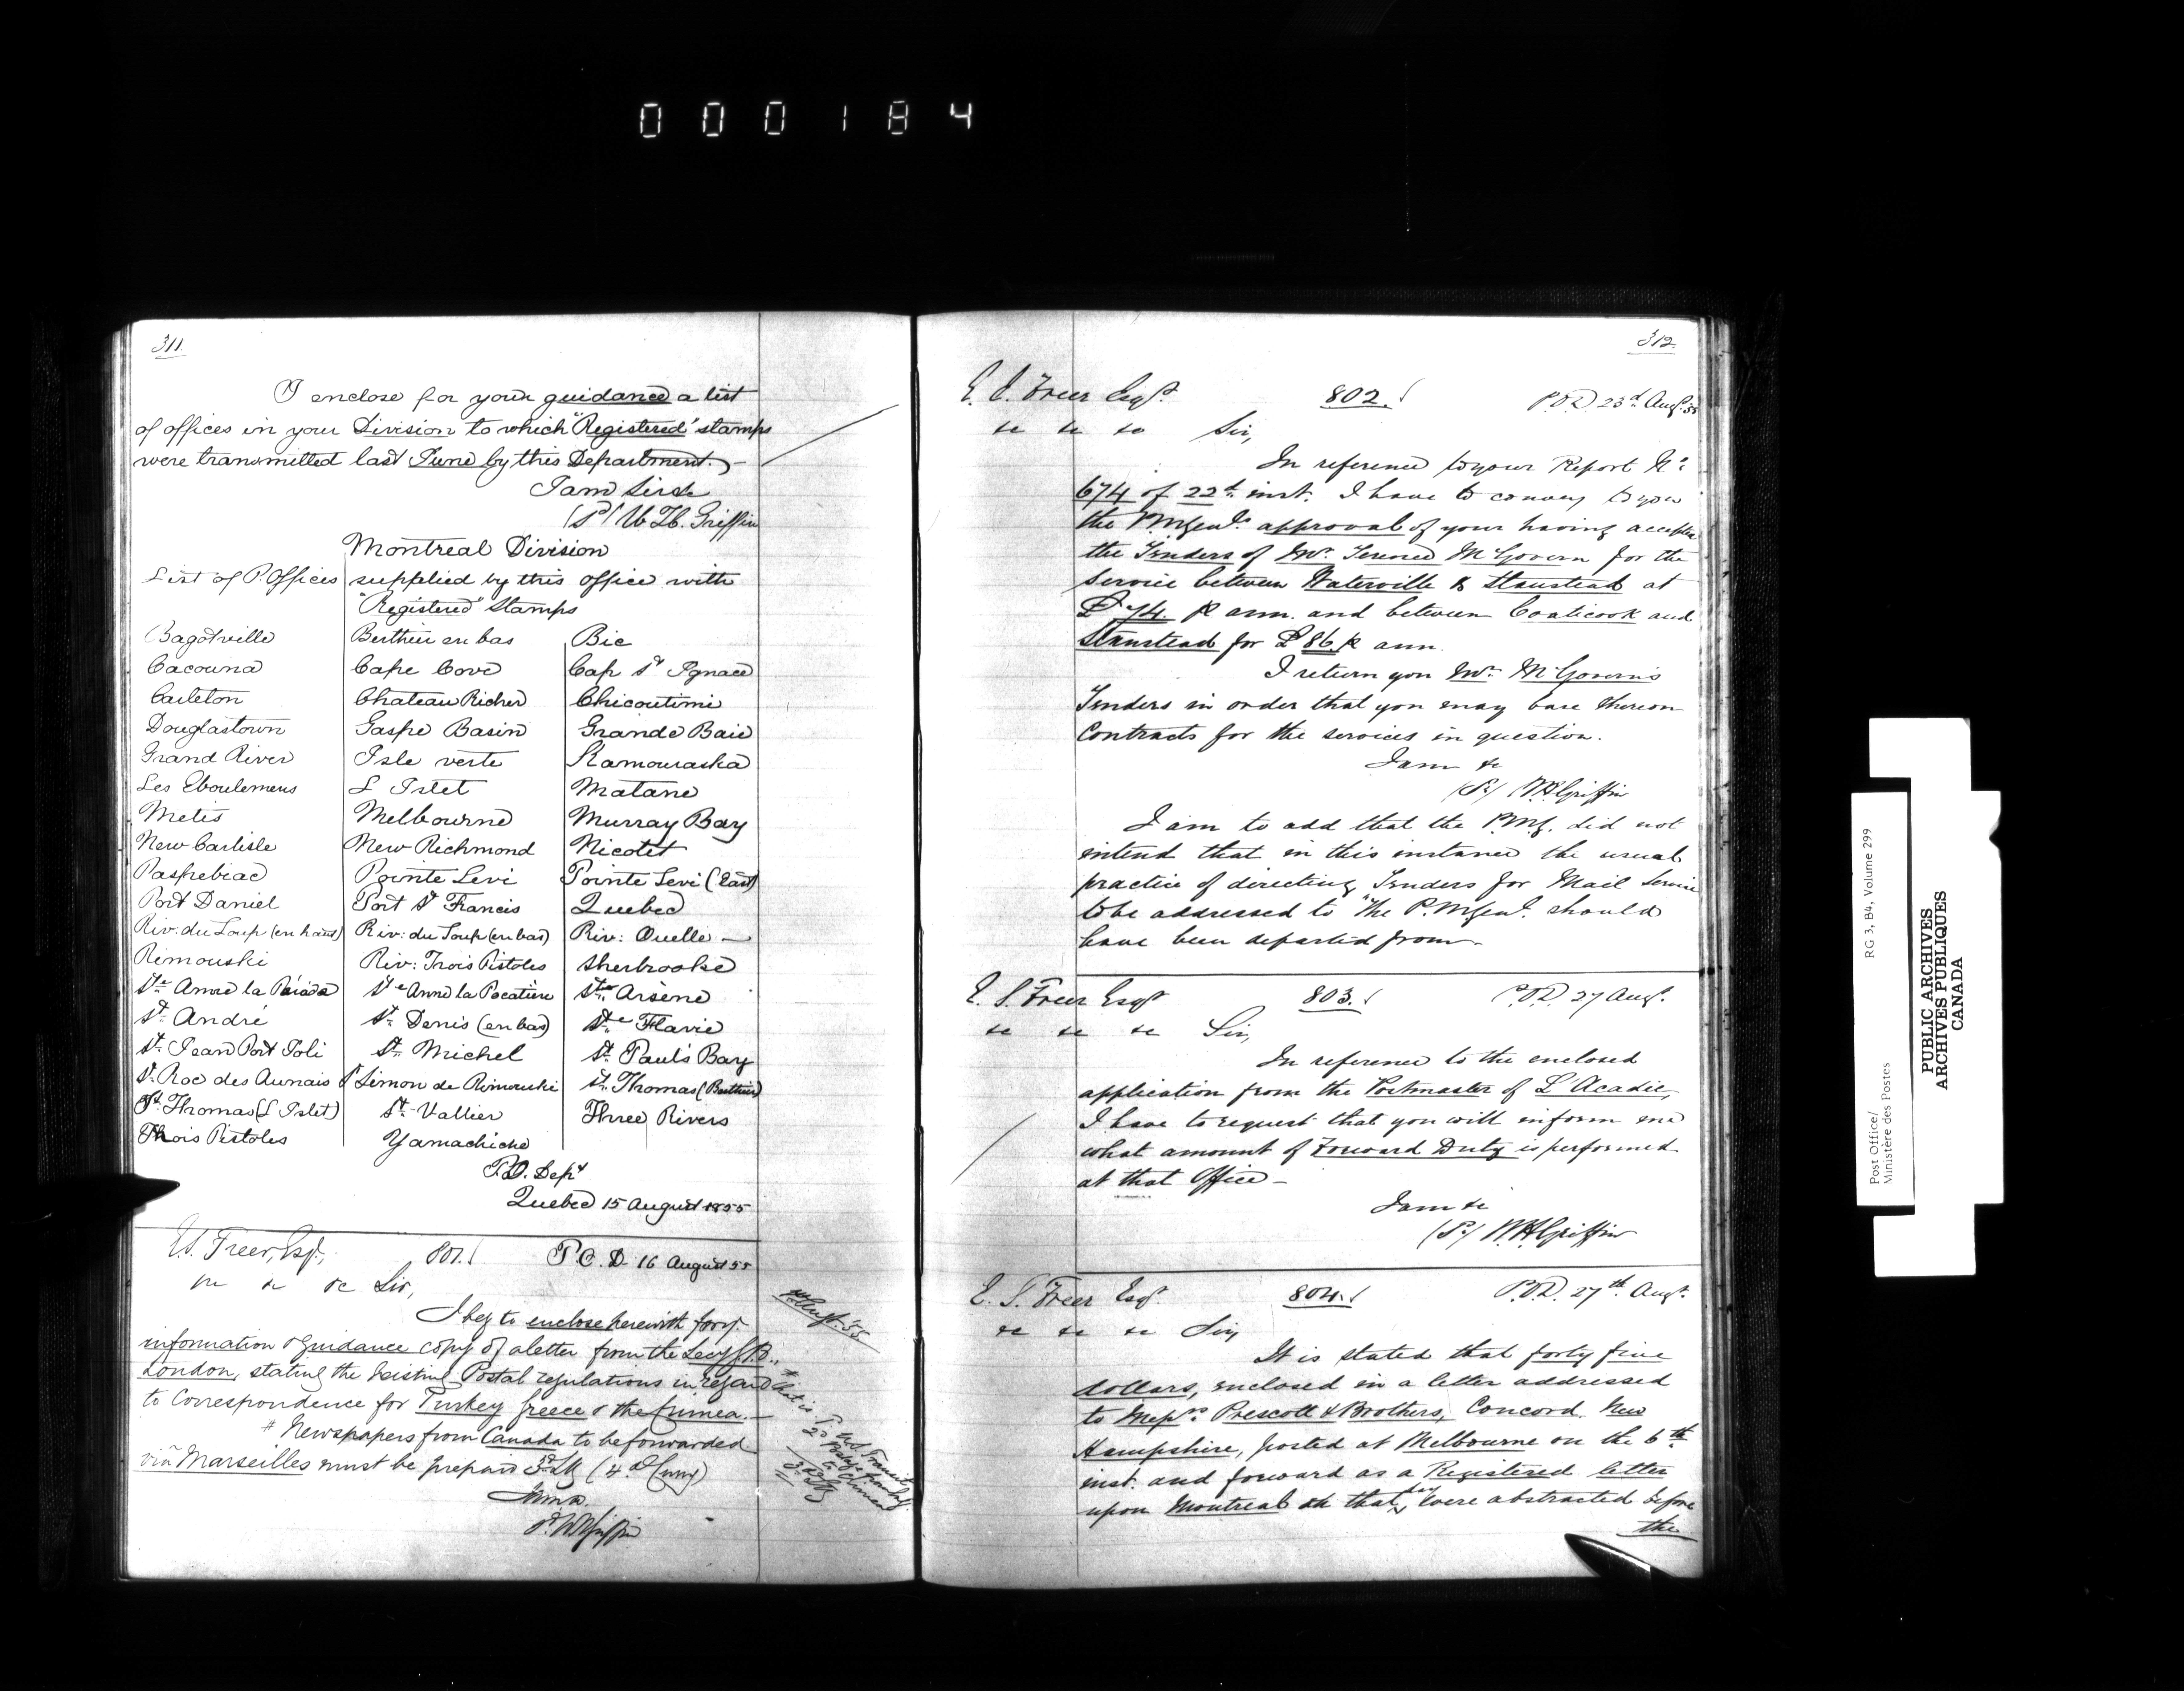 000184
311.
I enclose for your guidance a list
of offices in your Division to which "Registered" stamps
were transmitted last June by this Department.
I am Sir &c
W. H. Griffin
Montreal Division
List of P. Offices supplied by this office with
"Registered" Stamps
Bagotville Berthier en bas Bic
Cacouna Cape Cove Cap St Ignace
Carleton Chateau Richer Chicoutimi
Douglastown Gaspe Basin Grande Baie
Grand River Isle verte Kamouraska
Les Eboulemens L Islet Matane
Metis Melbourne Murray Bay
New Carlisle New Richmond Nicolet
Paspebiac Pointe Levi Pointe Levi (East)
Port Daniel Port St Francis Quebec
Riv: du Loup (en haut) Riv: du Loup (en bas) Riv: Ouelle
Rimouski Riv: Trois Pistoles Sherbrooke
Ste Anne la Pérade Ste Anne la Pocatière St Arsène
St André St Denis (en bas) Ste Flavie
St Jean Port Joli St Michel St Paul's Bay
St Roc des Aunais St Simon de Rimouski St Thomas (Berthier)
St Thomas (L Islet) St Vallier Three Rivers
Trois Pistoles Yamachiche
P.O. Dept
Quebec 15 August 1855
E. S. Freer, Esqr., 801. P.O.D. 16 August 55
&c &c &c Sir,
I beg to enclose herewith for yr.
information & guidance copy of a letter from the Secy G.P.O.,
London, stating the existing Postal regulations in regard
to Correspondence for Turkey Greece & the Crimea.
# Newspapers from Canada to be forwarded
via Marseilles must be prepaid 3d Stg (4d Curry)
I am &c
W H Griffin
Augt. 55
# that is
1d U.S. Transit
2d Postage from
to Crimea
3d Stg
312.
E. S. Freer Esqr. 802. P.O.D. 23d Augt. 55
&c &c &c Sir,
In reference to your Report No.
674 of 22d inst. I have to convey to you
the P.M.Genl's approval of your having accepted
the Tenders of Mr. Terence McGovern for the
service between Waterville & Stanstead at
£74 p ann. and between Coaticook and
Stanstead for £86 p ann.
I return you Mr. McGovern's
Tenders in order that you may base thereon
Contracts for the services in question.
I am &c
W.H. Griffin
I am to add that the P.M.G. did not
intend that in this instance the usual
practice of directing Tenders for Mail Service
to be addressed to "the P.M.Genl. should
have been departed from.
E. S. Freer Esqr 803. P.O.D. 27 Augt.
&c &c &c Sir,
In reference to the enclosed
application from the Postmaster of L'Acadie,
I have to request that you will inform me
what amount of Forward Duty is performed
at that Office -
I am &c
W.H. Griffin
E. S. Freer Esqr. 804. P.O.D. 27th Augt.
&c &c &c Sir
It is stated that forty five
dollars, enclosed in a letter addressed
to Messrs Prescott & Brothers, Concord, New
Hampshire, posted at Melbourne on the 6th
inst. and forward as a Registered letter
upon Montreal on that day were abstracted before
the
RG 3, B4, Volume 299
Post Office/
Ministère des Postes
PUBLIC ARCHIVES
ARCHIVES PUBLIQUES
CANADA